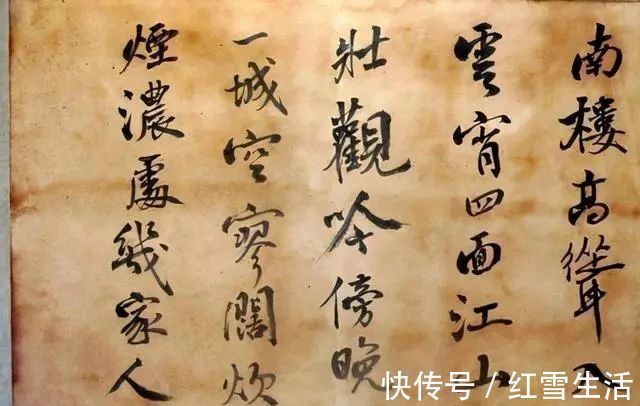 南樓高聳入
雲霄四面江山
壯觀吟傍晚
一城空寥闊炊
煙濃處幾家人
快传号/红雪生活